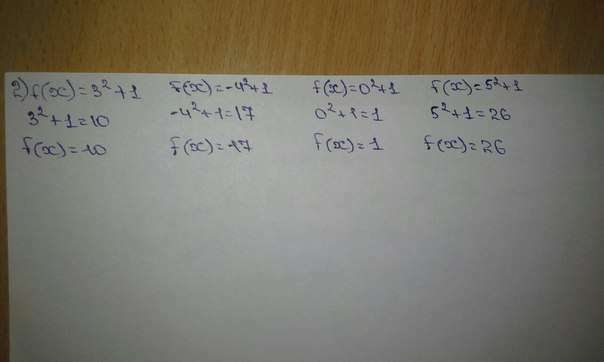 2) f(x)=3²+1 f(x)=-4²+1 f(x)=0²+1 f(x)=5²+1
3²+1=10 -4²+1=17 0²+1=1 5²+1=26
f(x)=10 f(x)=17 f(x)=1 f(x)=26